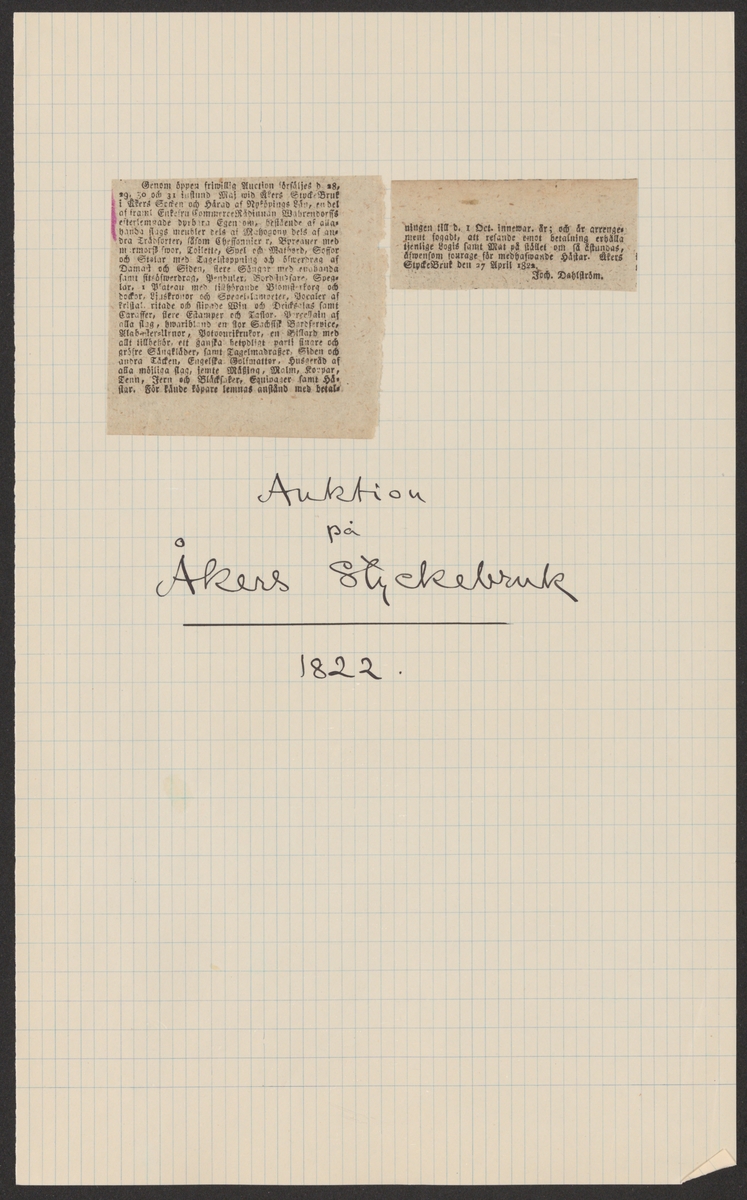 Genom öppen friwillig Auction försäljes d. 28,
29, 30 och 31 instund. Maj wid Åkers StyckeBruk
i Åkers Socken och Härad af Nyköpings Län, en del
af framl. Enkefru CommerceRådinnan Wahrendorffs
efterlemnade dyrbara Egendom, bestående af alla-
handa slags meubler dels af Mahogony dels af an-
dra Trädsorter, såsom Cheffonnier r, Byreauer med
m rmorskifwor, Toilette, Spel och Matbord, Soffor
och Stolar med Tagelstoppning och öfwerdrag af
Damast och Siden, flere Sängar med omhanda
samt sitsöfwerdrag, Penduler, Bordstudsare, Speg-
lar, 1 Plateau med tillhörande Blomsterkorg och
dockor, Ljuskronor och Spegellampetter, Pocaler af
kristal, ritade och slipade Win och Dricksglas samt
Caraffer, flere Estamper och Taflor, Porcellain af
alla slag, hwaribland en stor Sachsisk Bordservice,
Alabasterurnor, Potpourikrukor, en Billard med
allt tillbehör, ett ganska betydligt parti finare och
gröfre Sängkläder, samt Tagelmadrasser, Siden och
andra Täcken, Engelska Golfmattor, Husgeråd af
alla möjliga slag, jemte Mässing, Malm, Koppar,
Tenn, Jern och Bläcksaker, Equipager samt Hä-
star. För kände köpare lemnas anstånd med betal-
ningen till d. 1 Oct. innewar. år; och är arrange-
ment fogadt, att resande emot betalning erhålla
tjenlige Logis samt Mat på stället om så åstundas,
äfwensom fourage för medhafwande Hästar. Åkers
StyckeBruk den 27 April 1822.
Joch. Dahlström.
Auktion
på
Åkers Styckebruk
1822.